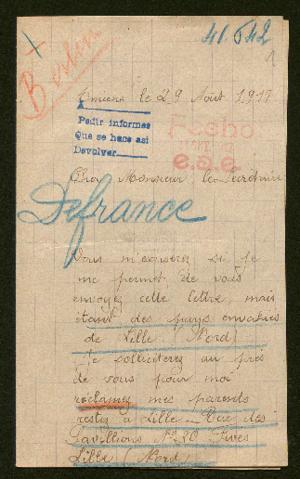 41.542
Berlin
Amiens le 29 Août 1917
Pedir informes
Que se hace así
Devolver
Fecho
e.a.e.
Cher Monsieur le Secretaire
Defrance
Vous m'excuserez si je
me permet de vous
envoyez cette lettre, mais
étant des pays envahies
de Lille (Nord)
Je solliciterez au près
de vous pour moi
reclamez mes parents
restez à Lille - Rue des
Pavillions N° 20 Fives
Lille (Nord)